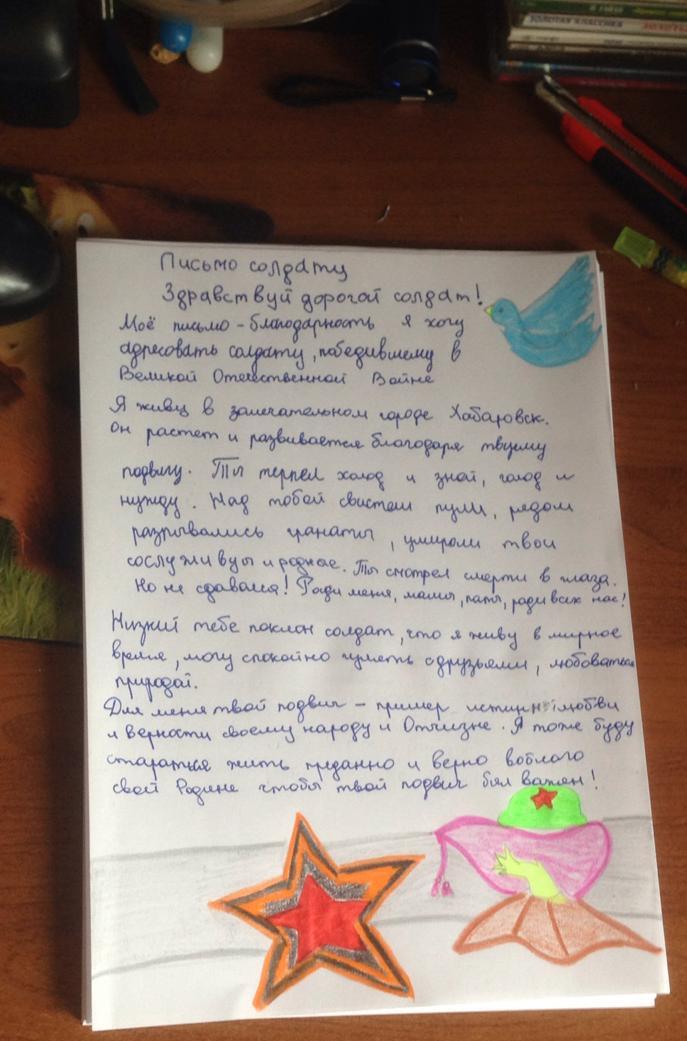 ЗОЛОТАЯ КЛАССИКА
Письмо солдату
Здравствуй дорогой солдат!
Моё письмо-благодарность я хочу
адресовать солдату, победившему в
Великой Отечественной Войне
Я живу в замечательном городе Хабаровск.
Он растет и развивается благодаря твоему
подвигу. Ты терпел холод и зной, голод и
нужду. Над тобой свистели пули, рядом
разрывались гранаты, умирали твои
сослуживцы и родные. Ты смотрел смерти в глаза.
Но не сдавался! Ради меня, мамы, папы, ради всех нас!
Низкий тебе поклон солдат, что я живу в мирное
время, могу спокойно гулять с друзьями, любоваться
природой.
Для меня твой подвиг - пример истинной любви
и верности своему народу и Отчизне. Я тоже буду
стараться жить преданно и верно во благо
своей Родине чтобы твой подвиг был важен!